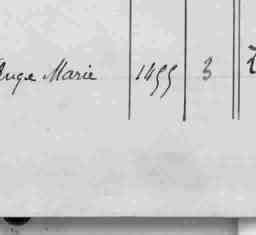 Ange Marie 1455 3